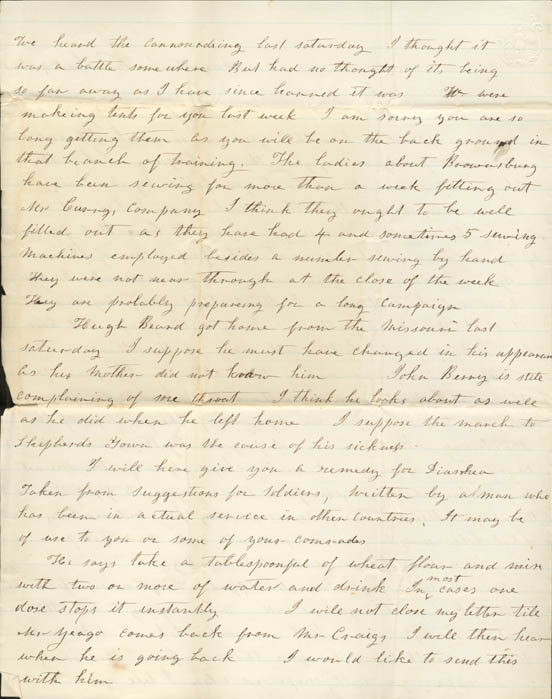 We heard the cannonadeing last saturday I thought it
was a battle some where But had no thought of its being
so far away as I have since learned it was We were
makeing tents for you last week I am sorry you are so
long getting them as you will be on the back ground in
that branch of training. The ladies about Brownsburg
have been sewing for more than a week fitting out
Mr Curry, Company I think they ought to be well
filled out as they have had 4 and sometimes 5 sewing
Machines employed besides a number sewing by hand
They were not near through at the close of the week
They are probably prepareing for a long Campaign
Hugh Beard got home from the Missouri last
saturday I suppose he must have changed in his appearan
as his Mother did not know him John Berry is still
complaining of sore throat I think he looks about as well
as he did when he left home I suppose the march to
Shepherds Town was the cause of his sickness.
I will here give you a remedy for Diarrhea
Taken from suggestions for Soldiers, written by a man who
has been in actual service in other Countries. It may be
of use to you or some of your comerades
He says take a tablespoonful of wheat flour and mix
with two or more of water and drink In most cases one
dose stops it instantly I will not close my letter till
Mr Yeago comes back from Mr Craigs I will then hear
when he is going back I would like to send this
with him